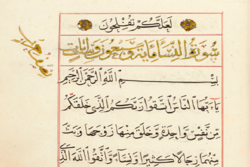 لَعَلَّكُمْ تُفْلِحُونَ
سورة النساء مائة وسبعون آيات
بِسْمِ اللَّهِ الرَّحْمَٰنِ الرَّحِيمِ
يَا أَيُّهَا النَّاسُ اتَّقُوا رَبَّكُمُ الَّذِي خَلَقَكُمْ
مِنْ نَفْسٍ وَاحِدَةٍ وَخَلَقَ مِنْهَا زَوْجَهَا وَبَثَّ
مِنْهُمَا رِجَالًا كَثِيرًا وَنِسَاءً وَاتَّقُوا اللَّهَ الَّذِي